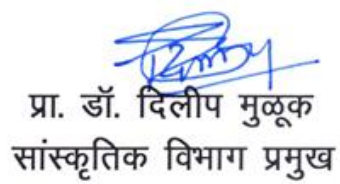 प्रा. डॉ. दिलीप मुळूक
सांस्कृतिक विभाग प्रमुख